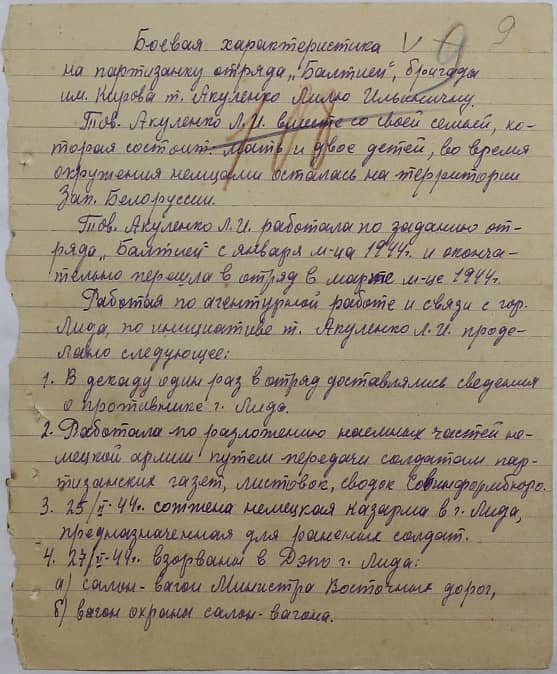 Боевая характеристика V 9 9
на партизанку отряда „Балтиец", бригады
им. Кирова т. Акуленко Лилю Ильиничну.
Тов. Акуленко Л.И. вместе со своей семьей, ко-
торая состоит мать и двое детей, во время
окружения немцами осталась на территории
Зап. Белоруссии.
Тов. Акуленко Л.И. работала по заданию от-
ряда „Балтиец" с января м-ца 1944г. и оконча-
тельно перешла в отряд в марте м-це 1944г.
Работая по агентурной работе и связи с гор.
Лида, по инициативе т. Акуленко Л.И. проде-
лано следующее:
1. В декаду один раз в отряд доставлялись сведения
о противнике г. Лида.
2. Работала по разложению наемных частей не-
мецкой армии путем передачи солдатам пар-
тизанских газет, листовок, сводок Совинформбюро.
3. 25/II-44г. сожжена немецкая казарма в г. Лида,
предназначенная для раненых солдат.
4. 27/II-44г. взорваны в Дэпо г. Лида:
а) салон-вагон Министра Восточных дорог,
б) вагон охраны салон-вагона.